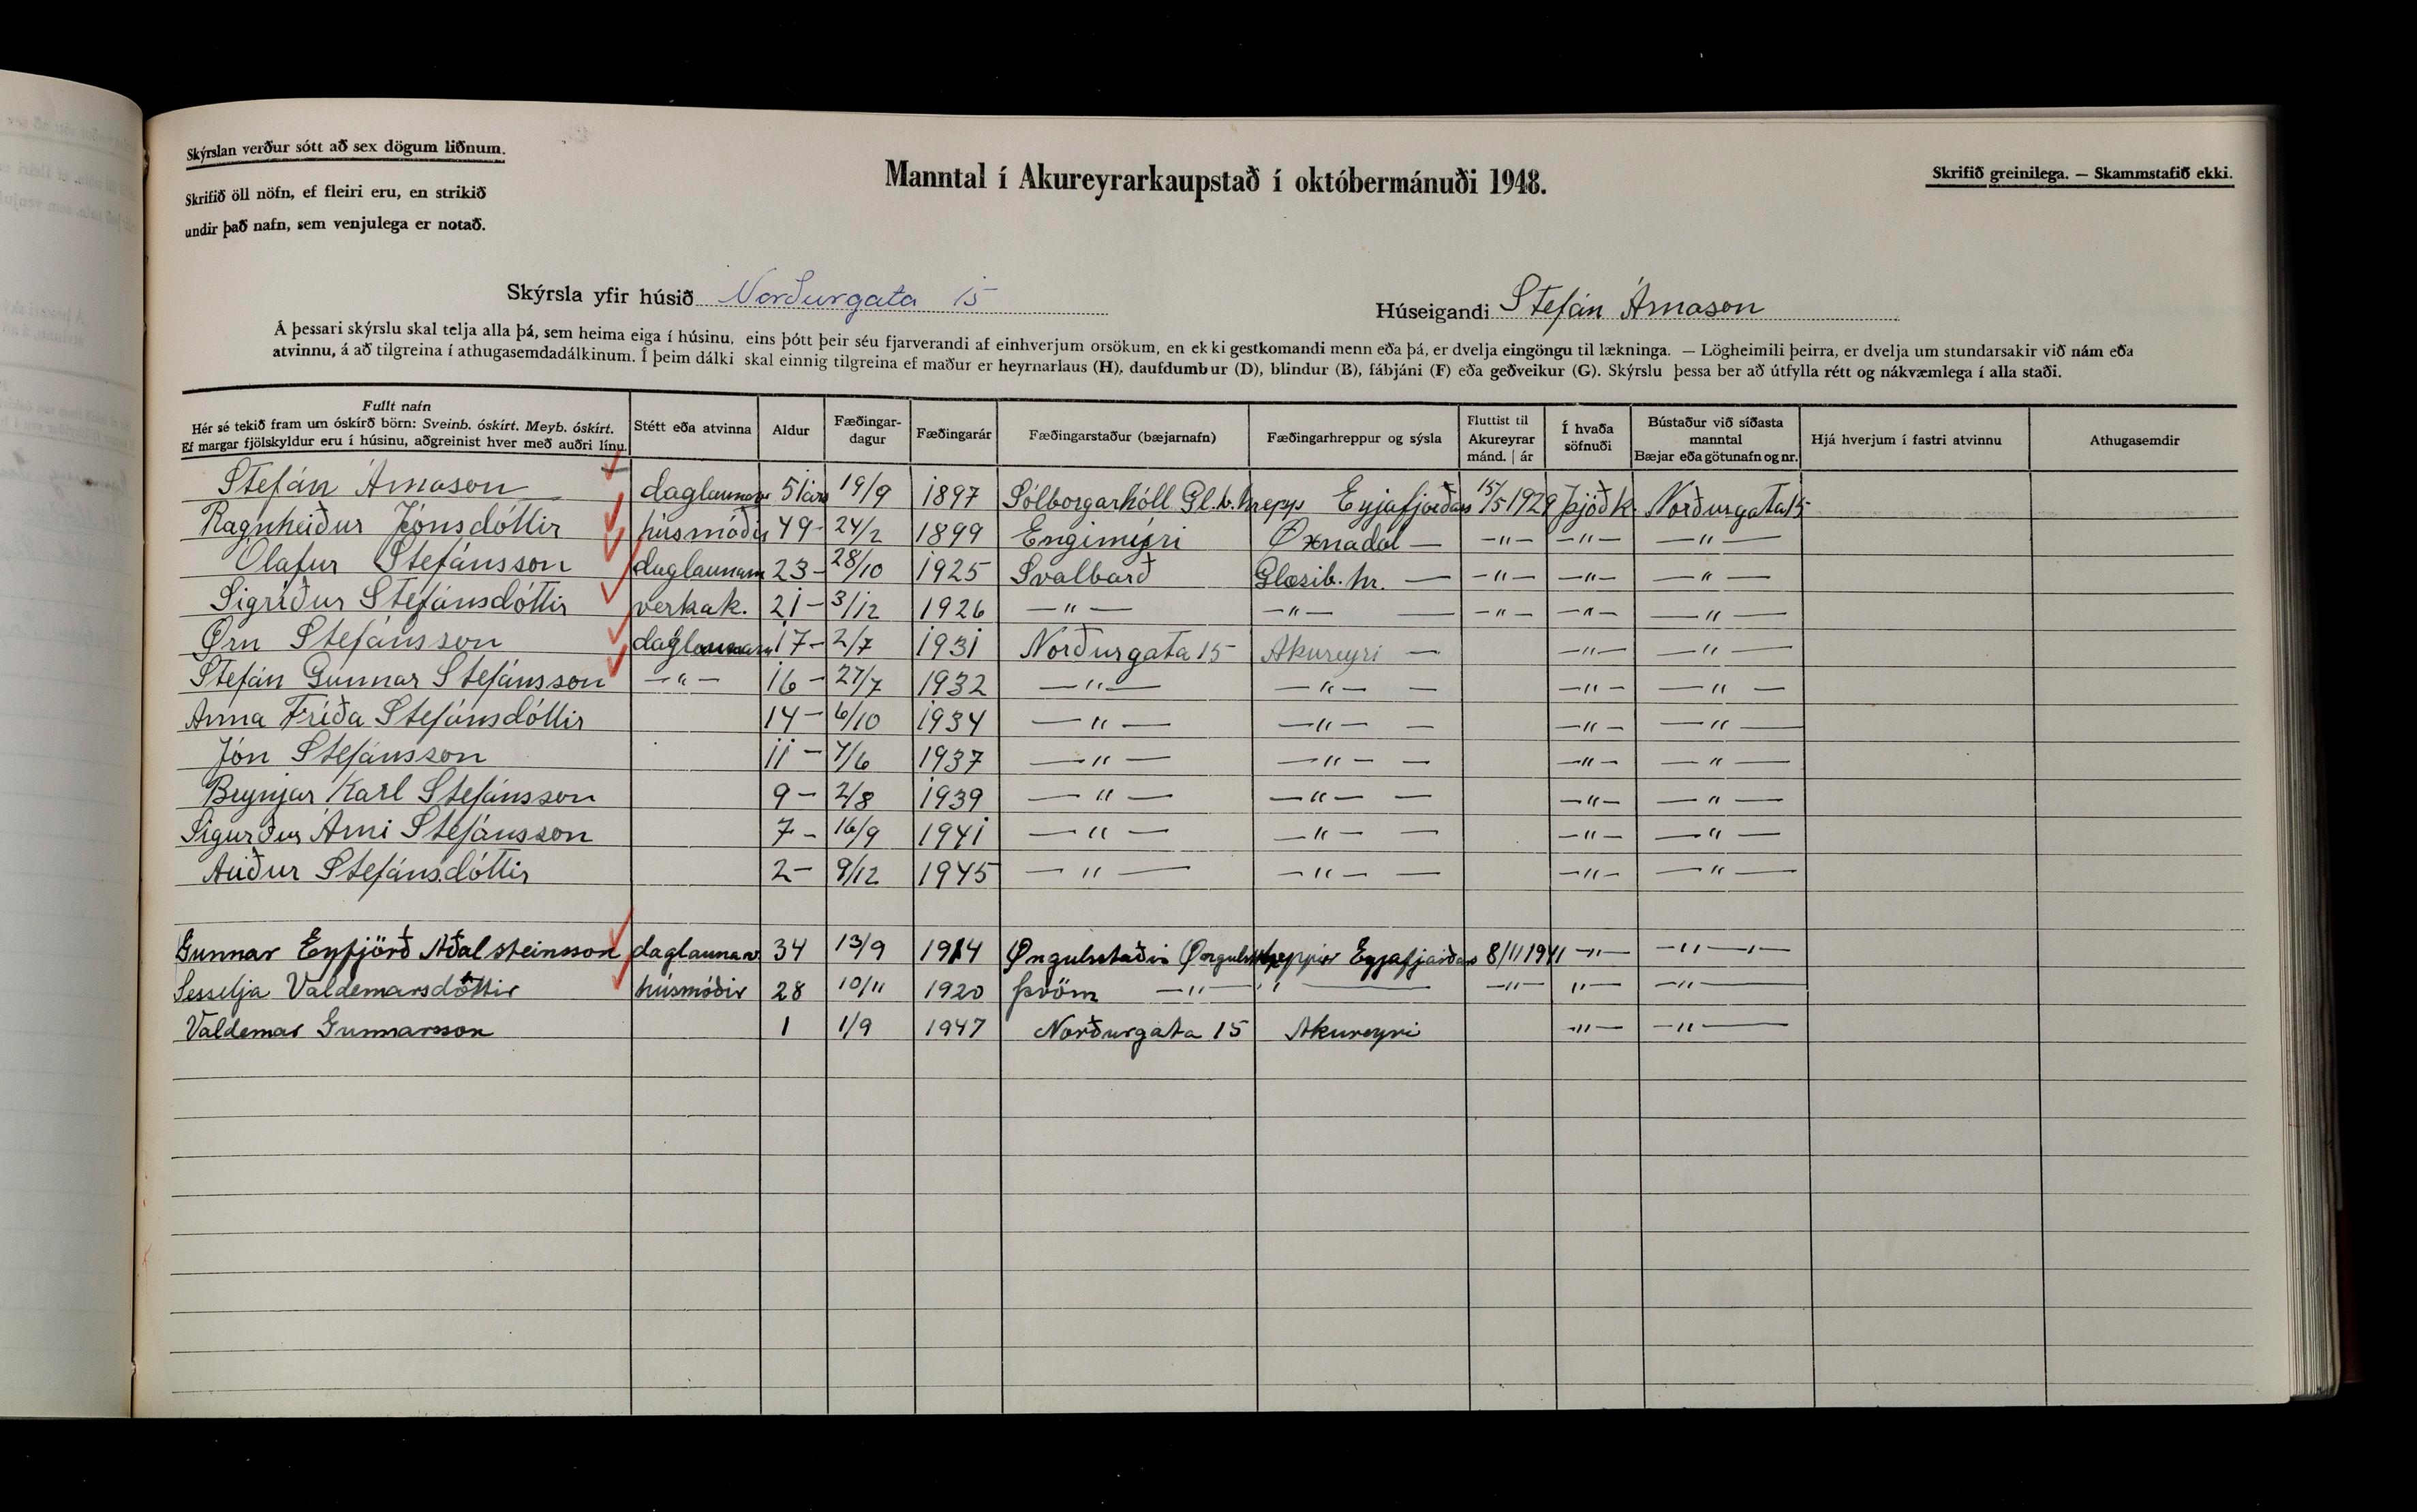 Skýrslan verður sótt að sex dögum liðnum.
Skrifið öll nöfn, ef fleiri eru, en strikið
undir það nafn, sem venjulega er notað.
Manntal í Akureyrarkaupstað í októbermánuði 1948.
Skrifið greinilega. — Skammstafið ekki.
Skýrsla yfir húsið Norðurgata 15
Húseigandi Stefán Árnason
Á þessari skýrslu skal telja alla þá, sem heima eiga í húsinu, eins þótt þeir séu fjarverandi af einhverjum orsökum, en ekki gestkomandi menn eða þá, er dvelja eingöngu til lækninga. — Lögheimili þeirra, er dvelja um stundarsakir við nám eða
atvinnu, á að tilgreina í athugasemdadálkinum. Í þeim dálki skal einnig tilgreina ef maður er heyrnarlaus (H), daufdumbur (D), blindur (B), fábjáni (F) eða geðveikur (G). Skýrslu þessa ber að útfylla rétt og nákvæmlega í alla staði.
Fullt nafn
Hér sé tekið fram um óskírð börn: Sveinb. óskírt. Meyb. óskírt.
Ef margar fjölskyldur eru í húsinu, aðgreinist hver með auðri línu.
Stétt eða atvinna
Aldur
Fæðingar-
dagur
Fæðingarár
Fæðingarstaður (bæjarnafn)
Fæðingarhreppur og sýsla
Fluttist til
Akureyrar
mánd. | ár
Í hvaða
söfnuði
Bústaður við síðasta
manntal
Bæjar eða götunafn og nr.
Hjá hverjum í fastri atvinnu
Athugasemdir
Stefán Árnason daglaunam 51 árs 19/9 1897 Sólborgarhóll Gl.b.hrepp Eyjafjarðars 15/5 1929 Þjóðk. Norðurgata 15
Ragnheiður Jónsdóttir húsmóðir 49 - 24/2 1899 Engimýri Øxnadal — — " — — " — — " —
Ólafur Stefánsson daglaunam 23 - 28/10 1925 Svalbarð Glæsib. hr. — — " — — " — — " —
Sigríður Stefánsdóttir verkak. 21 - 3/12 1926 — " — — " — — — " — — " — — " —
Ørn Stefánsson daglaunam 17 - 2/7 1931 Norðurgata 15 Akureyri — — " — — " —
Stefán Gunnar Stefánsson — " — 16 - 27/7 1932 — " — — " — — — " — — " —
Anna Fríða Stefánsdóttir 14 - 6/10 1934 — " — — " — — — " — — " —
Jón Stefánsson 11 - 7/6 1937 — " — — " — — — " — — " —
Brynjar Karl Stefánsson 9 - 2/8 1939 — " — — " — — — " — — " —
Sigurður Árni Stefánsson 7 - 16/9 1941 — " — — " — — — " — — " —
Auður Stefánsdóttir 2 - 9/12 1945 — " — — " — — — " — — " —
Gunnar Eyfjörð Aðalsteinsson daglaunam 34 13/9 1914 Øngulsstaðir Eyjafjarðars 8/11 1941 — " — — " —
Sesselja Valdemarsdóttir húsmóðir 28 10/11 1920 Þröm — " — " — — " — " — — " —
Valdemar Gunnarsson 1 1/9 1947 Norðurgata 15 Akureyri — " — — " —